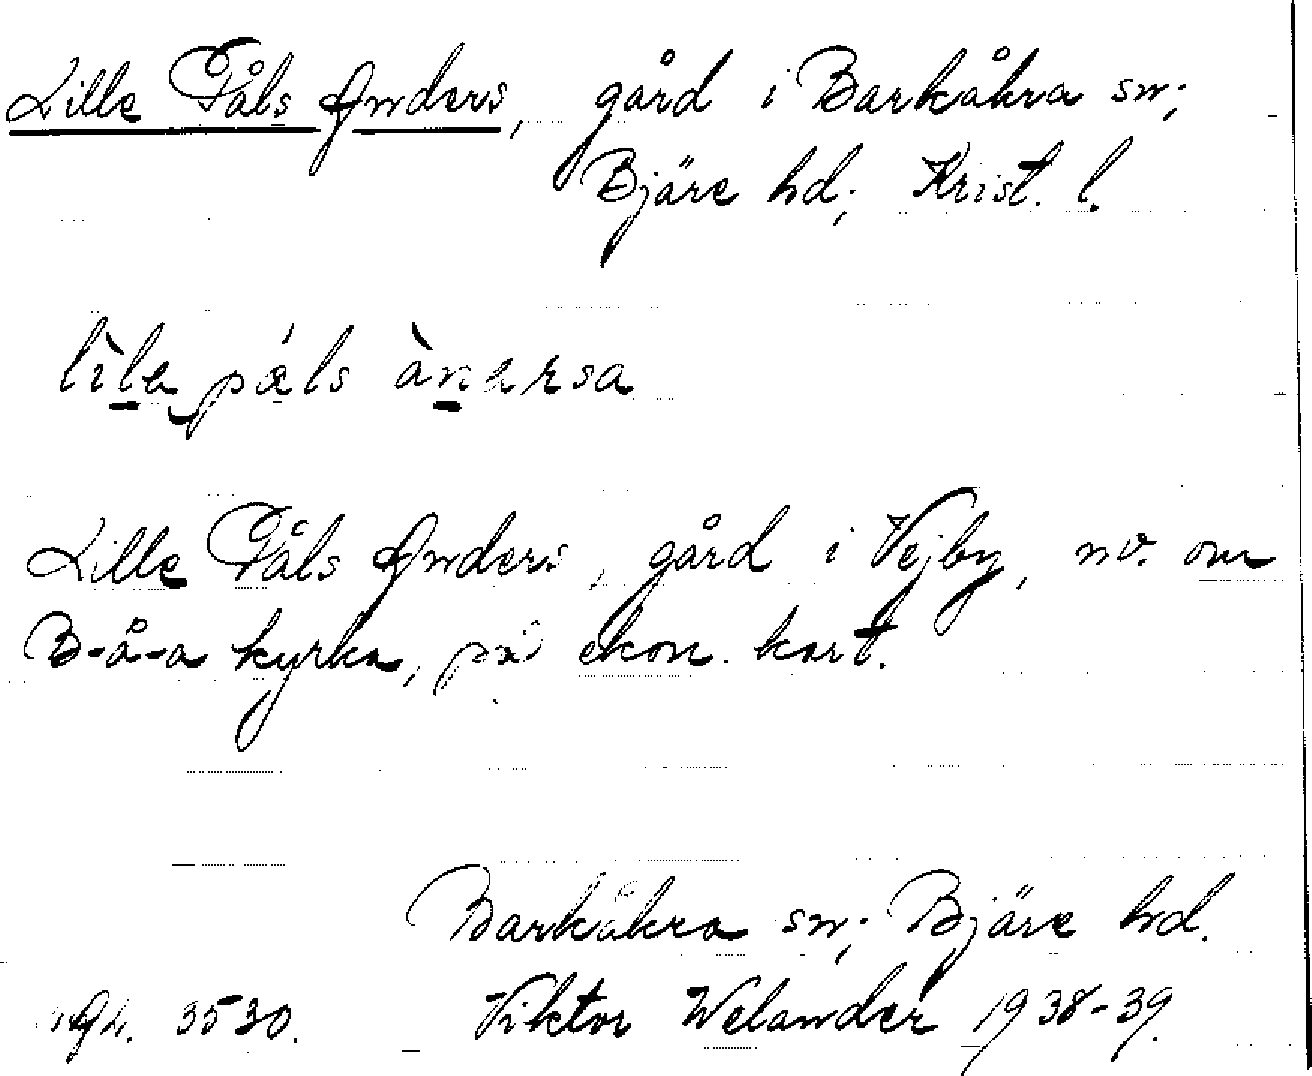 Lille Påls Anders, gård i Barkåkra sn;
Bjäre hd; Krist. l.
lìla páls ànarsa
Lille Påls Anders, gård i Vejby, nv. om
B-å-a kyrka, på ekon. kart.
Barkåkra sn; Bjäre hd.
3530. Viktor Welander 1938-39.